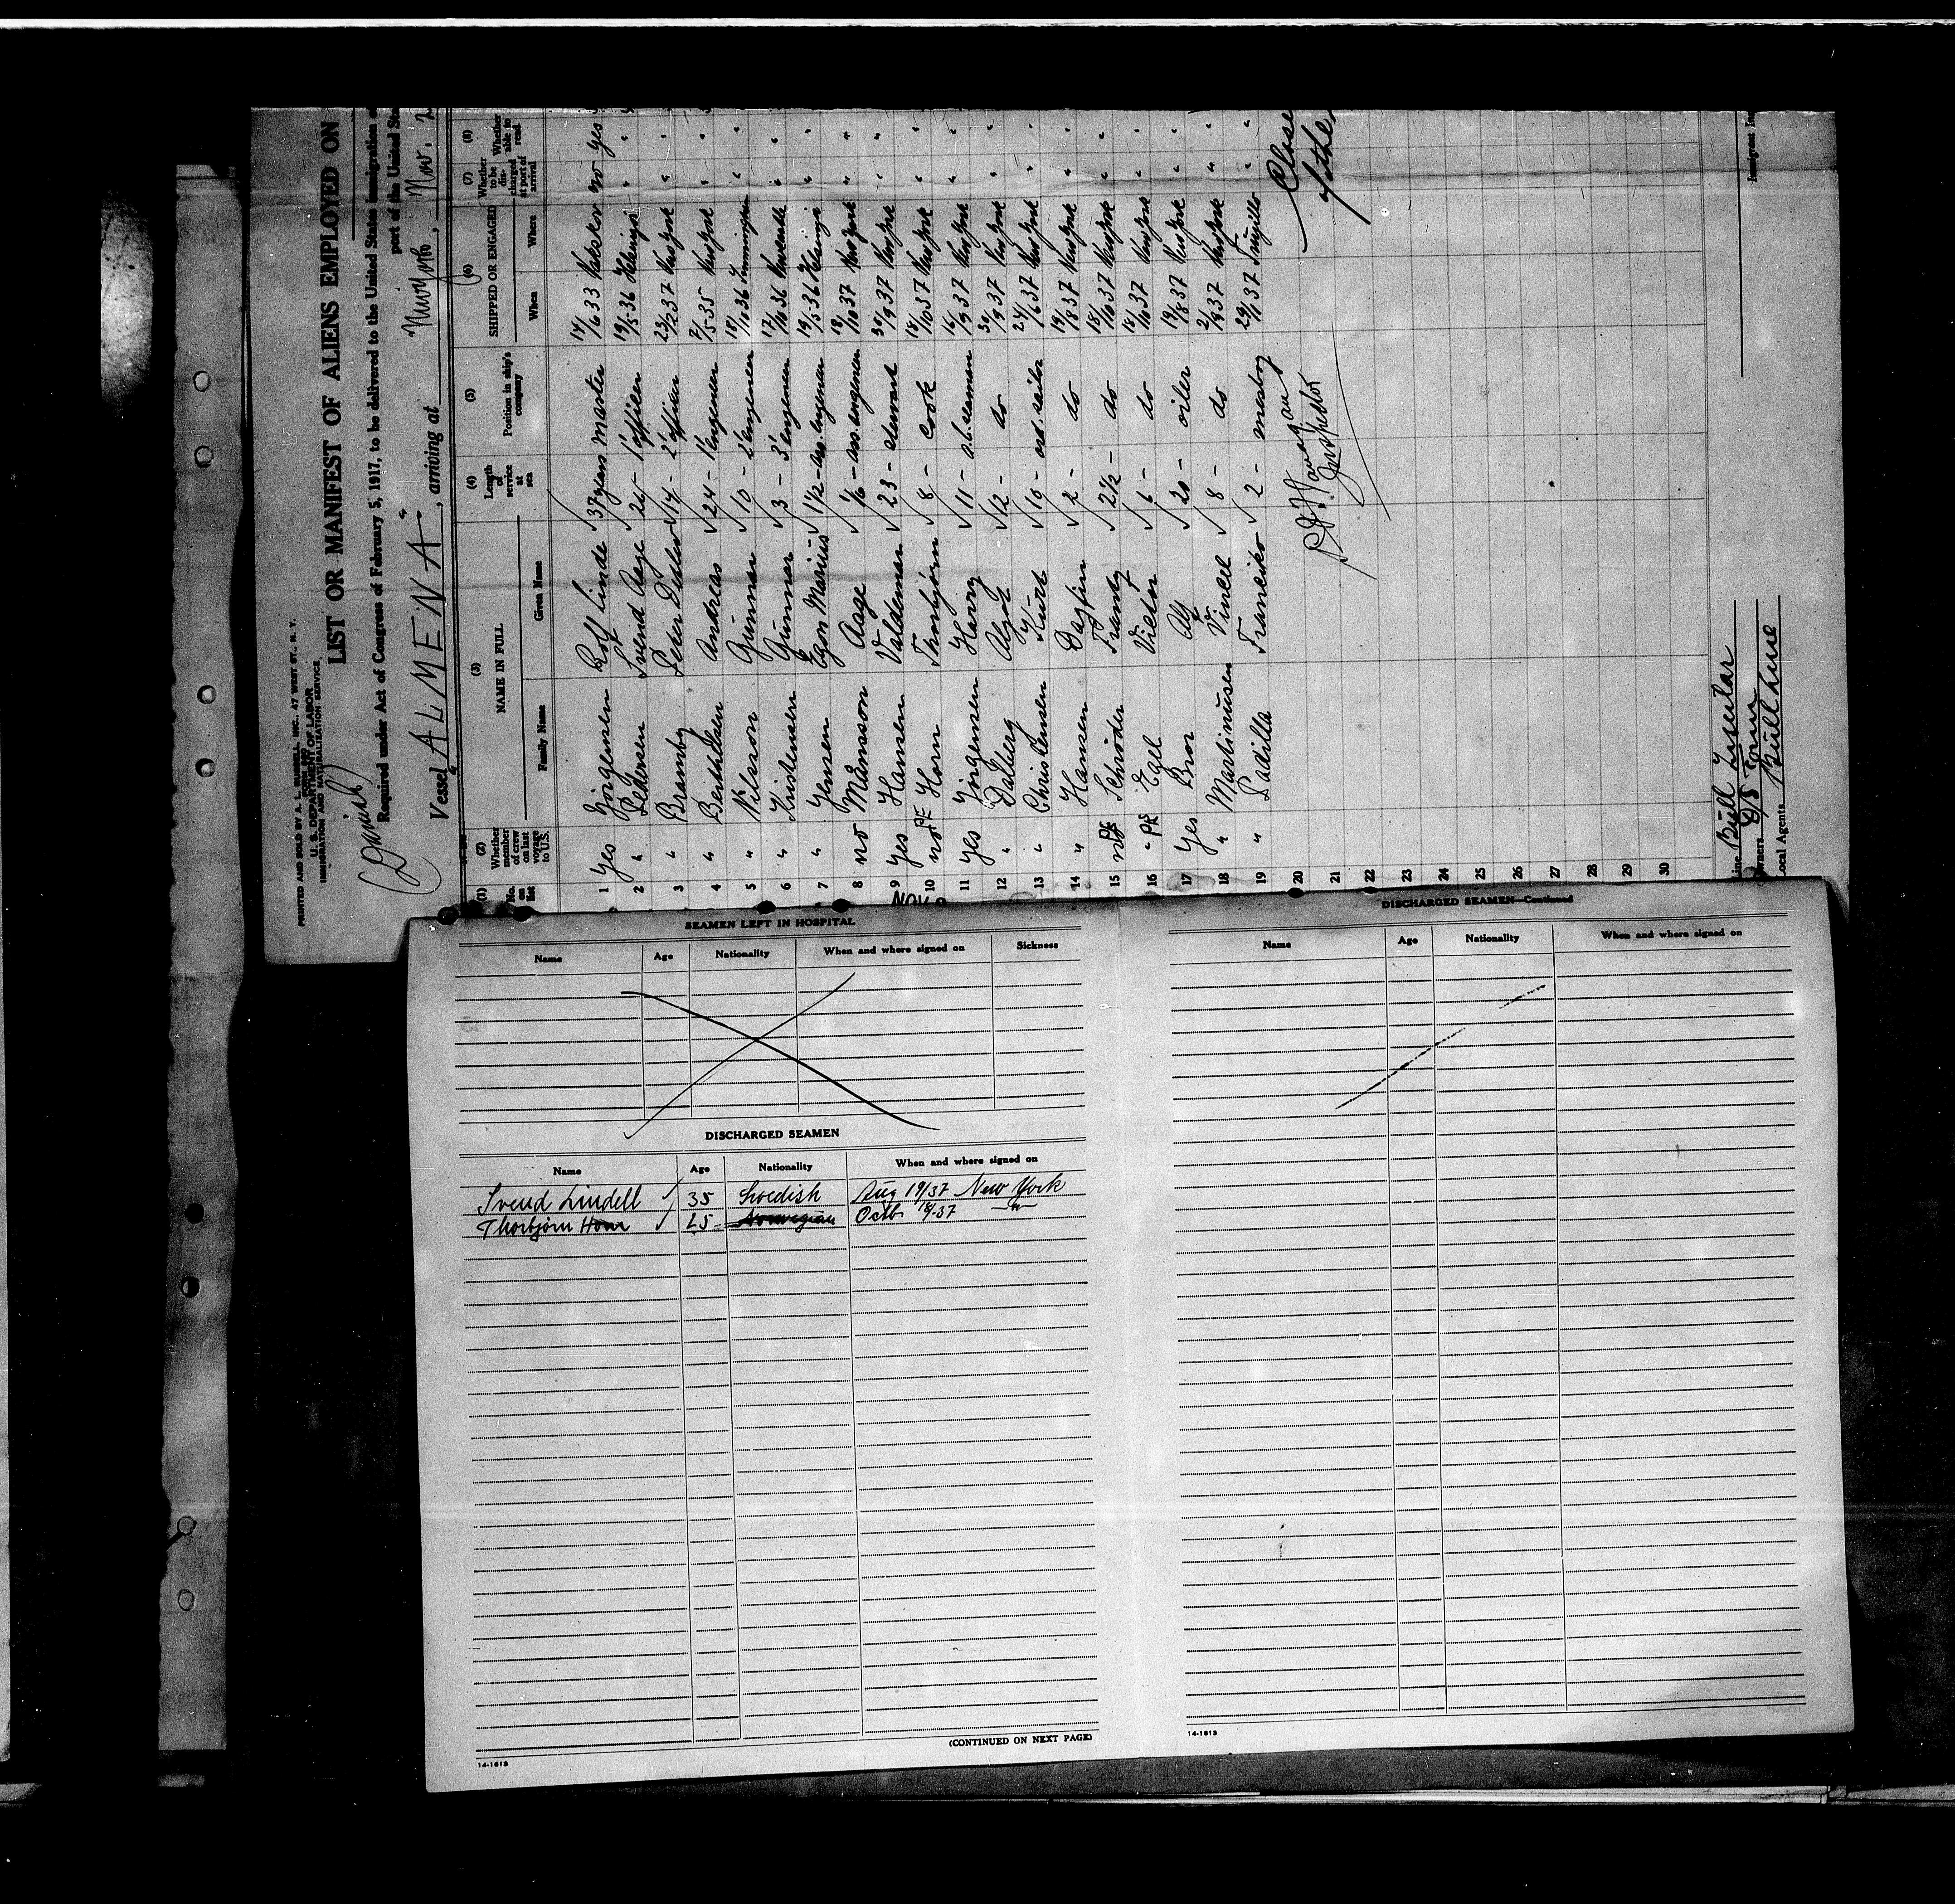 PRINTED AND SOLD BY A. L. RUSSELL, INC., 47 WEST ST., N. Y.
U. S. DEPARTMENT OF LABOR
IMMIGRATION AND NATURALIZATION SERVICE
(Danish)
LIST OR MANIFEST OF ALIENS EMPLOYED ON
Required under Act of Congress of February 5, 1917, to be delivered to the United States immigration
port of the United Sta
Vessel "ALMENA", arriving at New York, Nov. 2
(1) No. on list (2) Whether member of crew on last voyage to U.S. (3) NAME IN FULL Family Name Given Name (4) Length of service at sea (5) Position in ship's company (6) SHIPPED OR ENGAGED When Where (7) Whether to be discharged at port of arrival (8) Whether able to read
1 yes Jörgensen Rolf Linde 37 years master 14/6 33 no yes
2 " Pedersen Svend Aage 1' officer 19/5 36 " "
3 " Bramby Peter 14 - 2' officer 23/2 37 New York " "
4 " Berthelsen Andreas 24 - 1' engeneer New York " "
5 " Nilsson Gunnar 10 - 2' engeneer 18/10 36 " "
6 " Kristensen Gunnar 3 - 3' engeneer 17/10 36 " "
7 " Jensen Egon Marius 1 1/2 - ass. engeneer 19/5 36 " "
8 no Månsson Aage ass. engeneer 18/10 37 New York " "
9 yes Hansen Valdemar 23 - steward 30/9 37 New York " "
10 no PE Horn Thorbjørn 8 - cook 18/10 37 New York " "
11 yes Jörgensen Harry 11 - a.b. seaman 16/9 37 New York " "
12 " Dalberg 12 - do 30/9 37 New York " "
13 " Christensen Kurt 10 - ord. sailor 24/6 37 New York " "
14 " Hansen Dagfin 2 - do 19/8 37 New York " "
15 no PE Schröder Frantz 2 1/2 - do 18/10 37 New York " "
16 " PE Egel Victor 6 - do 18/10 37 New York " "
17 yes Bror 20 - oiler 19/8 37 New York " "
18 " Martinusen 8 - do 2/9 37 New York " "
19 " Padilla Francisko 2 - messboy 29/1 37 " "
20
21
22
23
24
25
26
27
28
29
30
Close
Inspector
Line Bull Insular
Owners D/S
Local Agents Bull Line
Immigrant In
NOV
SEAMEN LEFT IN HOSPITAL
Name Age Nationality When and where signed on Sickness
DISCHARGED SEAMEN
Name Age Nationality When and where signed on
Svend Lindell 35 Swedish Aug 19/37 New York
Thorbjørn Horn 25 Norwegian Octb. 18/-37 -"-
(CONTINUED ON NEXT PAGE)
14-1613
DISCHARGED SEAMEN—Continued
Name Age Nationality When and where signed on
14-1613